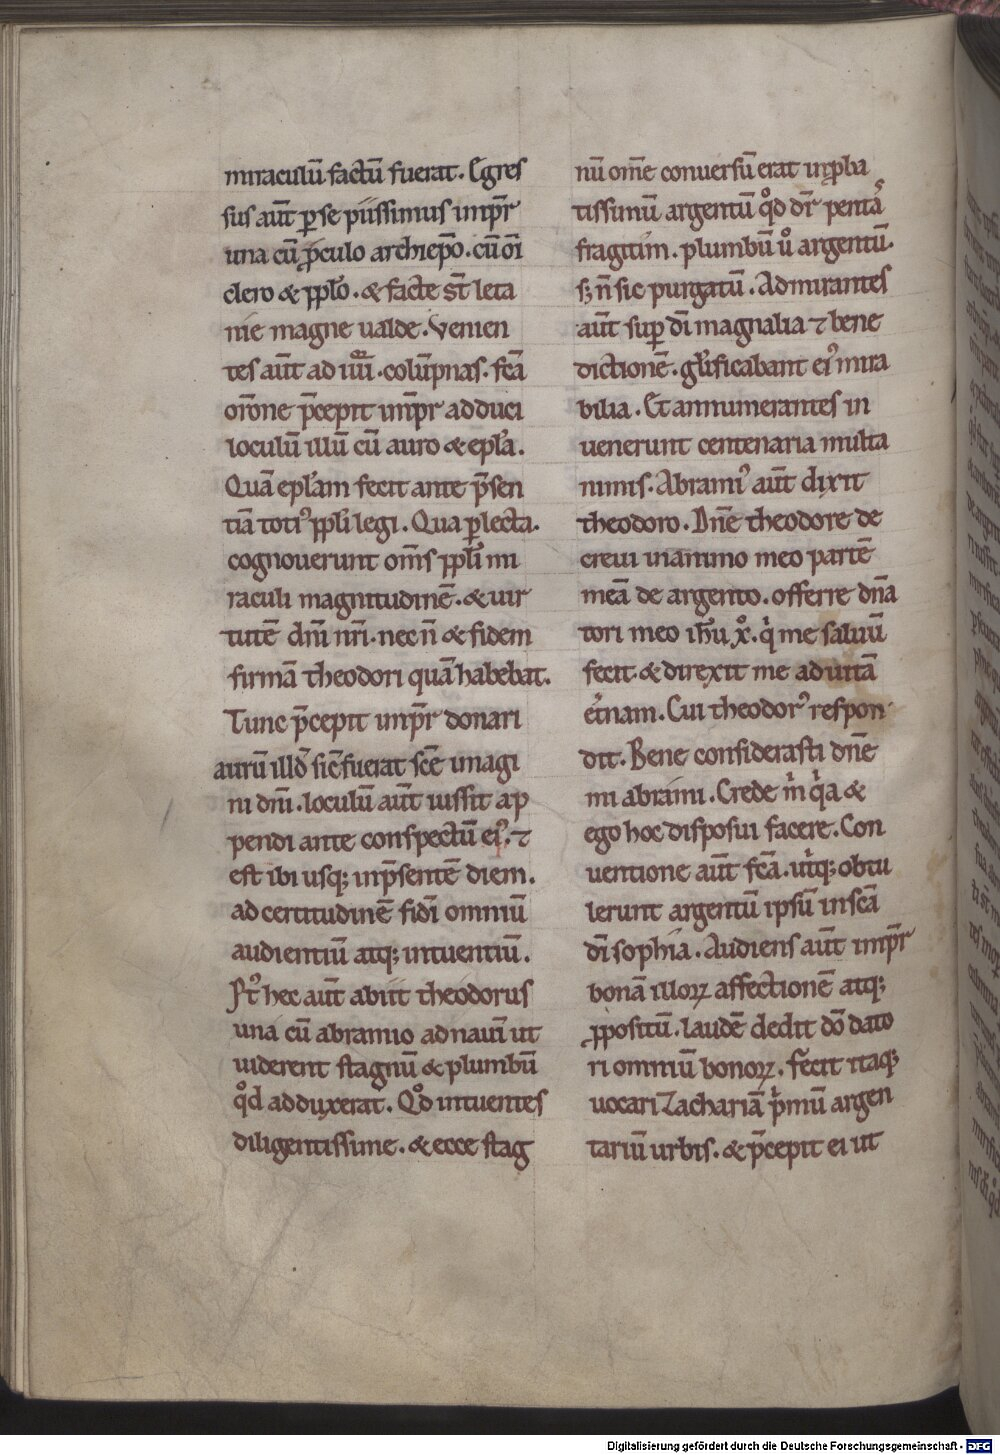 miraculū factū fuerat. Egres
sus aūt ꝑ se piissimus imp̄r
una cū ꝓculo archiep̄o. cū om̄i
clero & ppl̄o. & facte st̄ leta
nie magne ualde. Venien
tes aūt ad iiii. colūpnas. fc̄a
or̄one p̄cepit imp̄r adduci
loculū illū cū auro & epl̄a.
Quā epl̄am fecit ante p̄sen
tiā totiꝰ ppl̄i legi. Qua ꝑlecta.
cognouerunt om̄s ppl̄i mi
raculi magnitudinē. & uir
tutē dn̄i nr̄i. nec n̄ & fidem
firmā theodori quā habebat.
Tunc p̄cepit imp̄r donari
aurū illd̄ sic̄ fuerat sc̄e imagi
ni dn̄i. loculū aūt iussit ap
pendi ante conspectū eiꝰ. ⁊
est ibi usq; inp̄sentē diem.
ad certitudinē fid̄i omniū
audientiū atq; intuentiū.
Pꝰt hec aūt abiit theodorus
una cū abramio ad nauī ut
uiderent stagnū & plumbū
qͦd adduxerat. Qͦd intuentes
diligentissime. & ecce stag
nū om̄e conuersū erat inꝓba
tissimū argentū qͦd dr̄ penta
fragitim. plumbū uͦ argentū.
sꝫ n̄ sic purgatū. Admirantes
aūt suꝑ dī magnalia ⁊ bene
dictionē. gl̄ificabant eiꝰ mira
bilia. Et annumerantes in
uenerunt centenaria multa
nimis. Abramiꝰ aūt dixit
theodoro. Dn̄e theodore de
creui in animo meo partē
meā de argento. offerre dn̄a
tori meo ih̄u xͦ. qͥ me saluū
fecit. & direxit me ad uitā
et̄nam. Cui theodorꝰ respon
dit. Bene considerasti dn̄e
mi abrami. Crede mͥ qͥa &
ego hoc disposui facere. Con
uentione aūt fc̄a. ut̄q; obtu
lerunt argentū ipsū in sc̄ā
dī sophia. Audiens aūt imp̄r
bonā illoꝝ affectionē atq;
ꝓpositū. laudē dedit dō dato
ri omniū bonoꝝ. fecit itaq;
uocari Zachariā pͥmū argen
tariū urbis. & p̄cepit ei ut
Digitalisierung gefördert durch die Deutsche Forschungsgemeinschaft - DFG